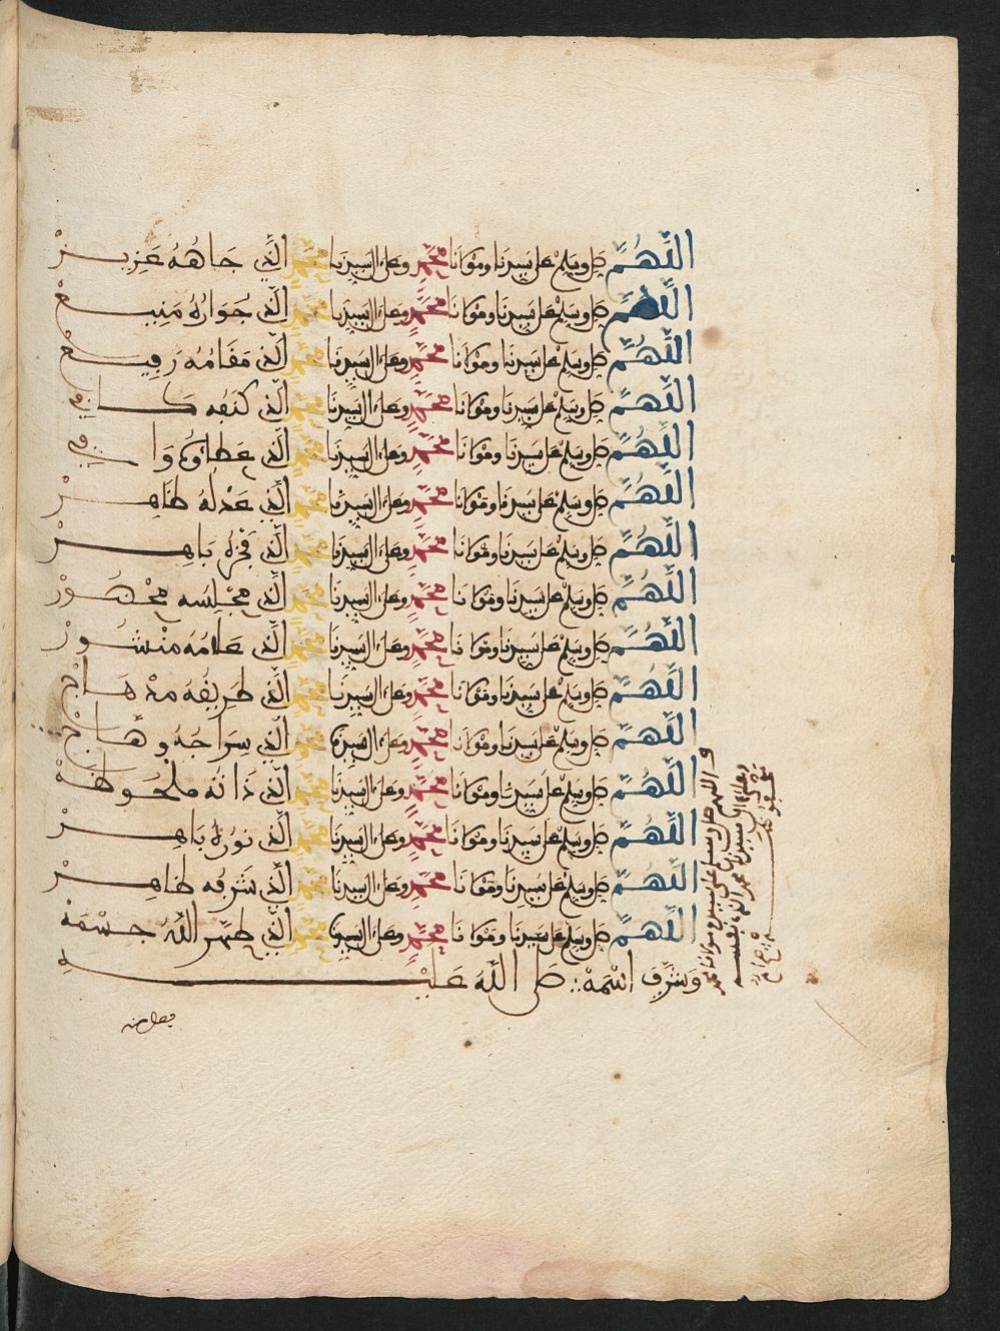 اللهم صل وسلم على سيدنا ومولانا محمد وعلى ال سيدنا محمد الذي جاهه عزيز
اللهم صل وسلم على سيدنا ومولانا محمد وعلى ال سيدنا محمد الذي جواره منيع
اللهم صل وسلم على سيدنا ومولانا محمد وعلى ال سيدنا محمد الذي مقامه رفيع
اللهم صل وسلم على سيدنا ومولانا محمد وعلى ال سيدنا محمد الذي كنفه كاف
اللهم صل وسلم على سيدنا ومولانا محمد وعلى ال سيدنا محمد الذي عطاؤه واف
اللهم صل وسلم على سيدنا ومولانا محمد وعلى ال سيدنا محمد الذي عدله ظاهر
اللهم صل وسلم على سيدنا ومولانا محمد وعلى ال سيدنا محمد الذي فخره باهر
اللهم صل وسلم على سيدنا ومولانا محمد وعلى ال سيدنا محمد الذي مجلسه محضور
اللهم صل وسلم على سيدنا ومولانا محمد وعلى ال سيدنا محمد الذي علمه منشور
اللهم صل وسلم على سيدنا ومولانا محمد وعلى ال سيدنا محمد الذي طريقه منهاج
اللهم صل وسلم على سيدنا ومولانا محمد وعلى ال سيدنا محمد الذي سراجه وهاج
اللهم صل وسلم على سيدنا ومولانا محمد وعلى ال سيدنا محمد الذي ذاته ملحوظة
اللهم صل وسلم على سيدنا ومولانا محمد وعلى ال سيدنا محمد الذي نوره باهر
اللهم صل وسلم على سيدنا ومولانا محمد وعلى ال سيدنا محمد الذي شرفه ظاهر
اللهم صل وسلم على سيدنا ومولانا محمد وعلى ال سيدنا محمد الذي طهر الله جسمه
وشرف اسمه صلى الله عليه
اللهم صل وسلم على سيدنا ومولانا محمد
وعلى ال سيدنا محمد الذي نفسه